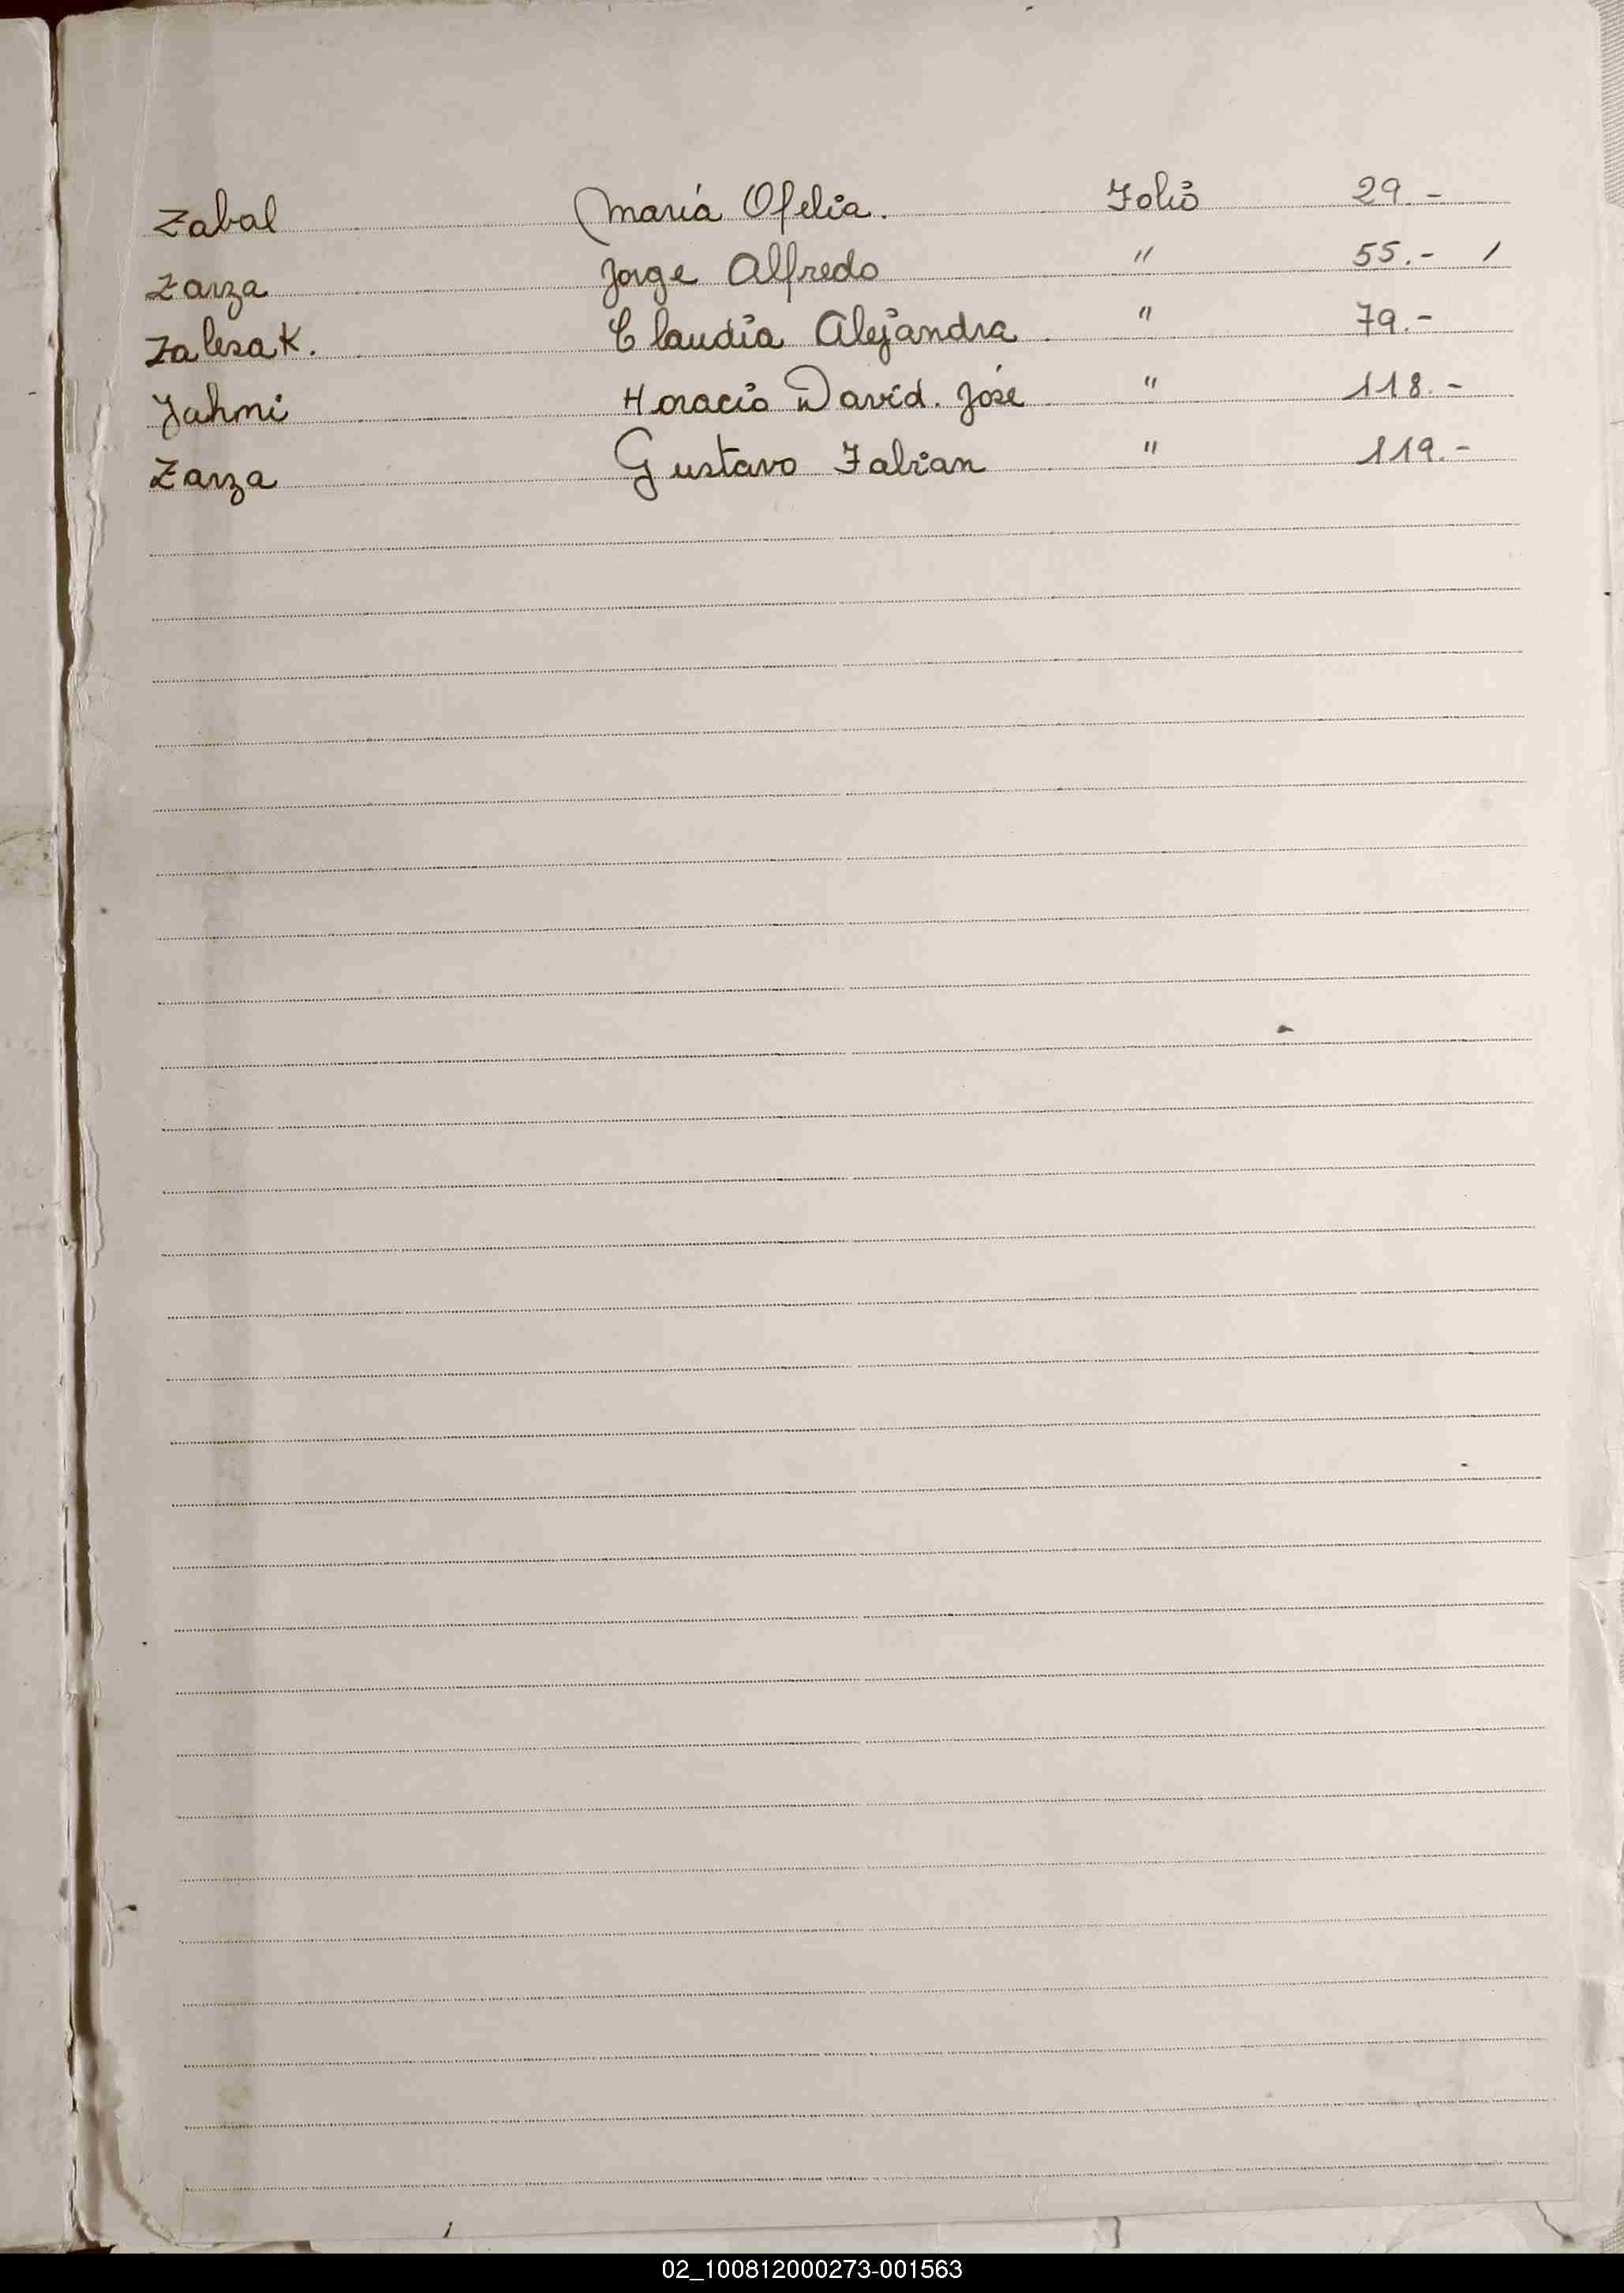 Zabal María Ofelia. Folio 29.-
Zarza Jorge Alfredo " 55.- /
Zalesak. Claudia Alejandra. " 79.-
Yahmi Horacio David. José " 118.-
Zarza Gustavo Fabian " 119.-
02_100812000273-001563